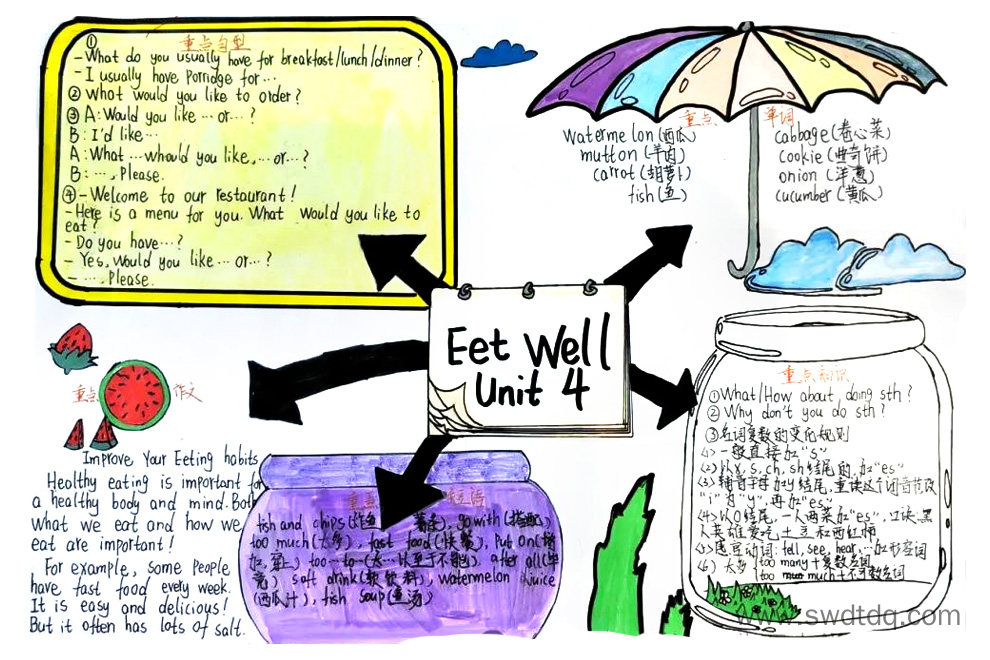 重点句型
①
-What do you usually have for breakfast/lunch/dinner?
-I usually have Porridge for…
② What would you like to order?
③ A: Would you like … or…?
B: I'd like…
A: What …whould you like, …or…?
B: …, Please.
④ - Welcome to our restaurant!
-Here is a menu for you. What would you like to
eat?
- Do you have…?
- Yes, would you like … or…?
- …, Please.
重点 单词
watermelon (西瓜)
mutton (羊肉)
carrot (胡萝卜)
fish (鱼)
cabbage (卷心菜)
cookie (曲奇饼)
onion (洋葱)
cucumber (黄瓜)
Eet Well
Unit 4
重点 作文
Improve Your Eeting habits
Healthy eating is important for
a healthy body and mind. Both
what we eat and how we
eat are important!
For example, some People
have fast food every week.
It is easy and delicious!
But it often has lots of salt.
重点 短语
fish and chips (炸鱼 薯条), go with (搭配)
too much (太多), fast food (快餐), Put on (增
加, 穿上) too…to… (太…以至于不能), after all (毕
竟) soft drink (软饮料), watermelon juice
(西瓜汁), fish soup (鱼汤)
重点知识
① What/How about doing sth?
② Why don't you do sth?
③ 名词复数的变化规则
(1) 一般直接加"s"
(2) 以x, s, ch, sh结尾的, 加"es"
(3) 辅音字母加y结尾,
"i" 为 "y", 再加"es"
(4) 以O结尾, 加"es", 口诀: 黑
人英雄爱吃土豆和西红柿
(5) 感官动词: fell, see, hear…加形容词
(6) 太多 too many + 复数名词
too much + 不可数名词
www.swdtdq.com